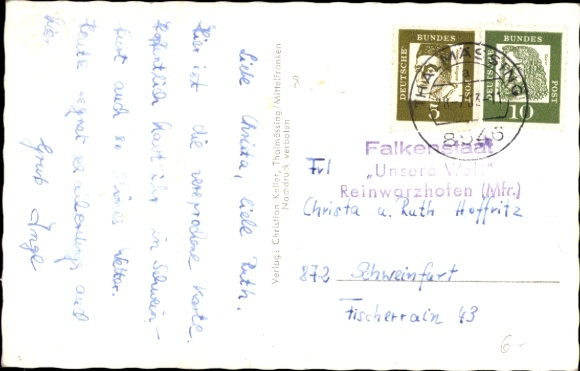 Liebe Christa, liebe Ruth.
Hier ist die versprochene Karte.
Hoffentlich habt ihr in Schwein-
furt auch so schönes Wetter.
Heute regnet es allerdings auch
hier.
Gruß Inge
Verlag: Christian Keller, Thalmässing/Mittelfranken
Nachdruck verboten
DEUTSCHE BUNDESPOST
5
DEUTSCHE BUNDESPOST
10
THALMÄSSING
8546
Falkenstaat
„Unsere Welt"
Reinwarzhofen (Mfr.)
Frl
Christa u. Ruth Hoffritz
872 Schweinfurt
Fischerrain 43
6-